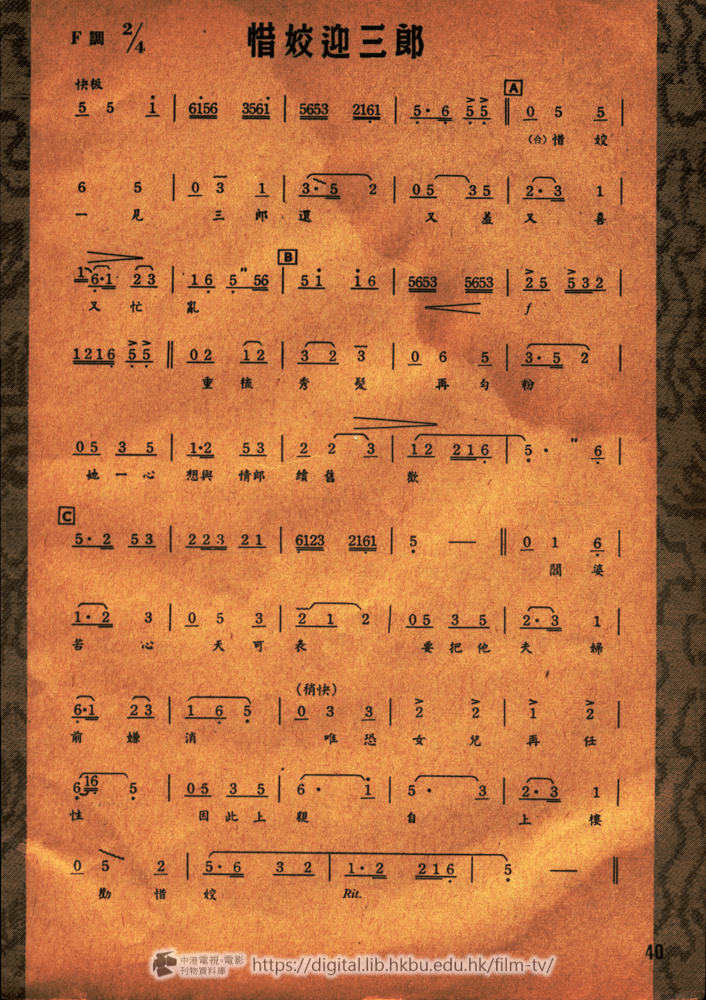 F調 2/4 惜姣迎三郎
快板
A
5 5 i | 6156 3561 | 5653 2161 | 5· 6 5 5 ‖ 0 5 5 |
(合)惜 姣
6 5 | 0 3 1 | 3· 5 2 | 0 5 3 5 | 2· 3 1 |
一 見 三 郎 還 又 羞 又 喜
B
1 6·1 2 3 | 1 6 5 56 | 5 i i 6 | 5653 5653 | 2 5 5 3 2 |
又 忙 亂 f
1 2 1 6 5 5 ‖ 0 2 1 2 | 3 2 3 | 0 6 5 | 3· 5 2 |
重 梳 秀 髮 再 勻 粉
0 5 3 5 | 1·2 5 3 | 2 2 3 | 1 2 2 1 6 | 5· 6 |
她 一 心 想與 情郎 續 舊 歡
C
5· 2 5 3 | 2 2 3 2 1 | 6123 2161 | 5 — ‖ 0 1 6 |
閻 婆
1· 2 3 | 0 5 3 | 2 1 2 | 0 5 3 5 | 2· 3 1 |
苦 心 天 可 表 要 把 他 夫 婦
(稍快)
6·1 2 3 | 1 6 5 | 0 3 3 | 2 2 | 1 2 |
前 嫌 消 唯 恐 女 兒 再 任
6 16 5 | 0 5 3 5 | 6· i | 5· 3 | 2· 3 1 |
性 因 此 上 親 自 上 樓
0 5 2 | 5· 6 3 2 | 1· 2 2 1 6 | 5 — ‖
勸 惜 姣 Rit.
40
中港電視·電影
刊物資料庫
https://digital.lib.hkbu.edu.hk/film-tv/